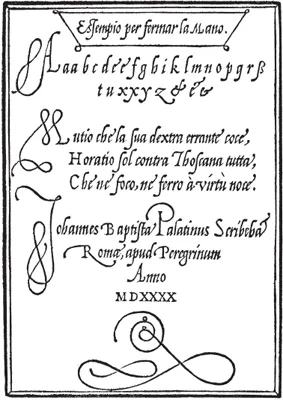 Essempio per fermar la Mano.
Aabcdeefghiklmnopqrsß
tuxxyz&e&
Mutio che la sua dextra errante coce,
Horatio sol contra Thoscana tutta,
Che ne foco, ne ferro à virtù noce.
Johannes Baptista Palatinus Scribeba
Romæ, apud Peregrinum
Anno
MDXXXX